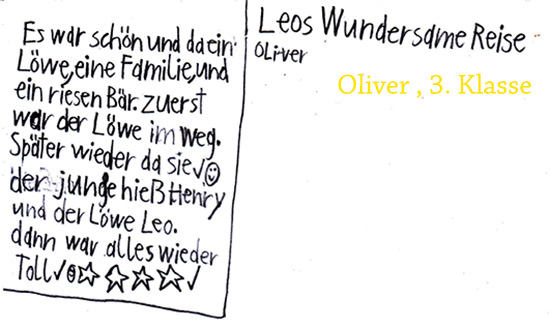 Es war schön und da ein
Löwe, eine Familie, und
ein riesen Bär. zuerst
war der Löwe im weg.
Später wieder da sie√☺
der junge hieß Henry
und der Löwe Leo.
dann war alles wieder
Toll√☺☆☆☆☆√
Leos Wundersame Reise
OLiver
Oliver , 3. Klasse